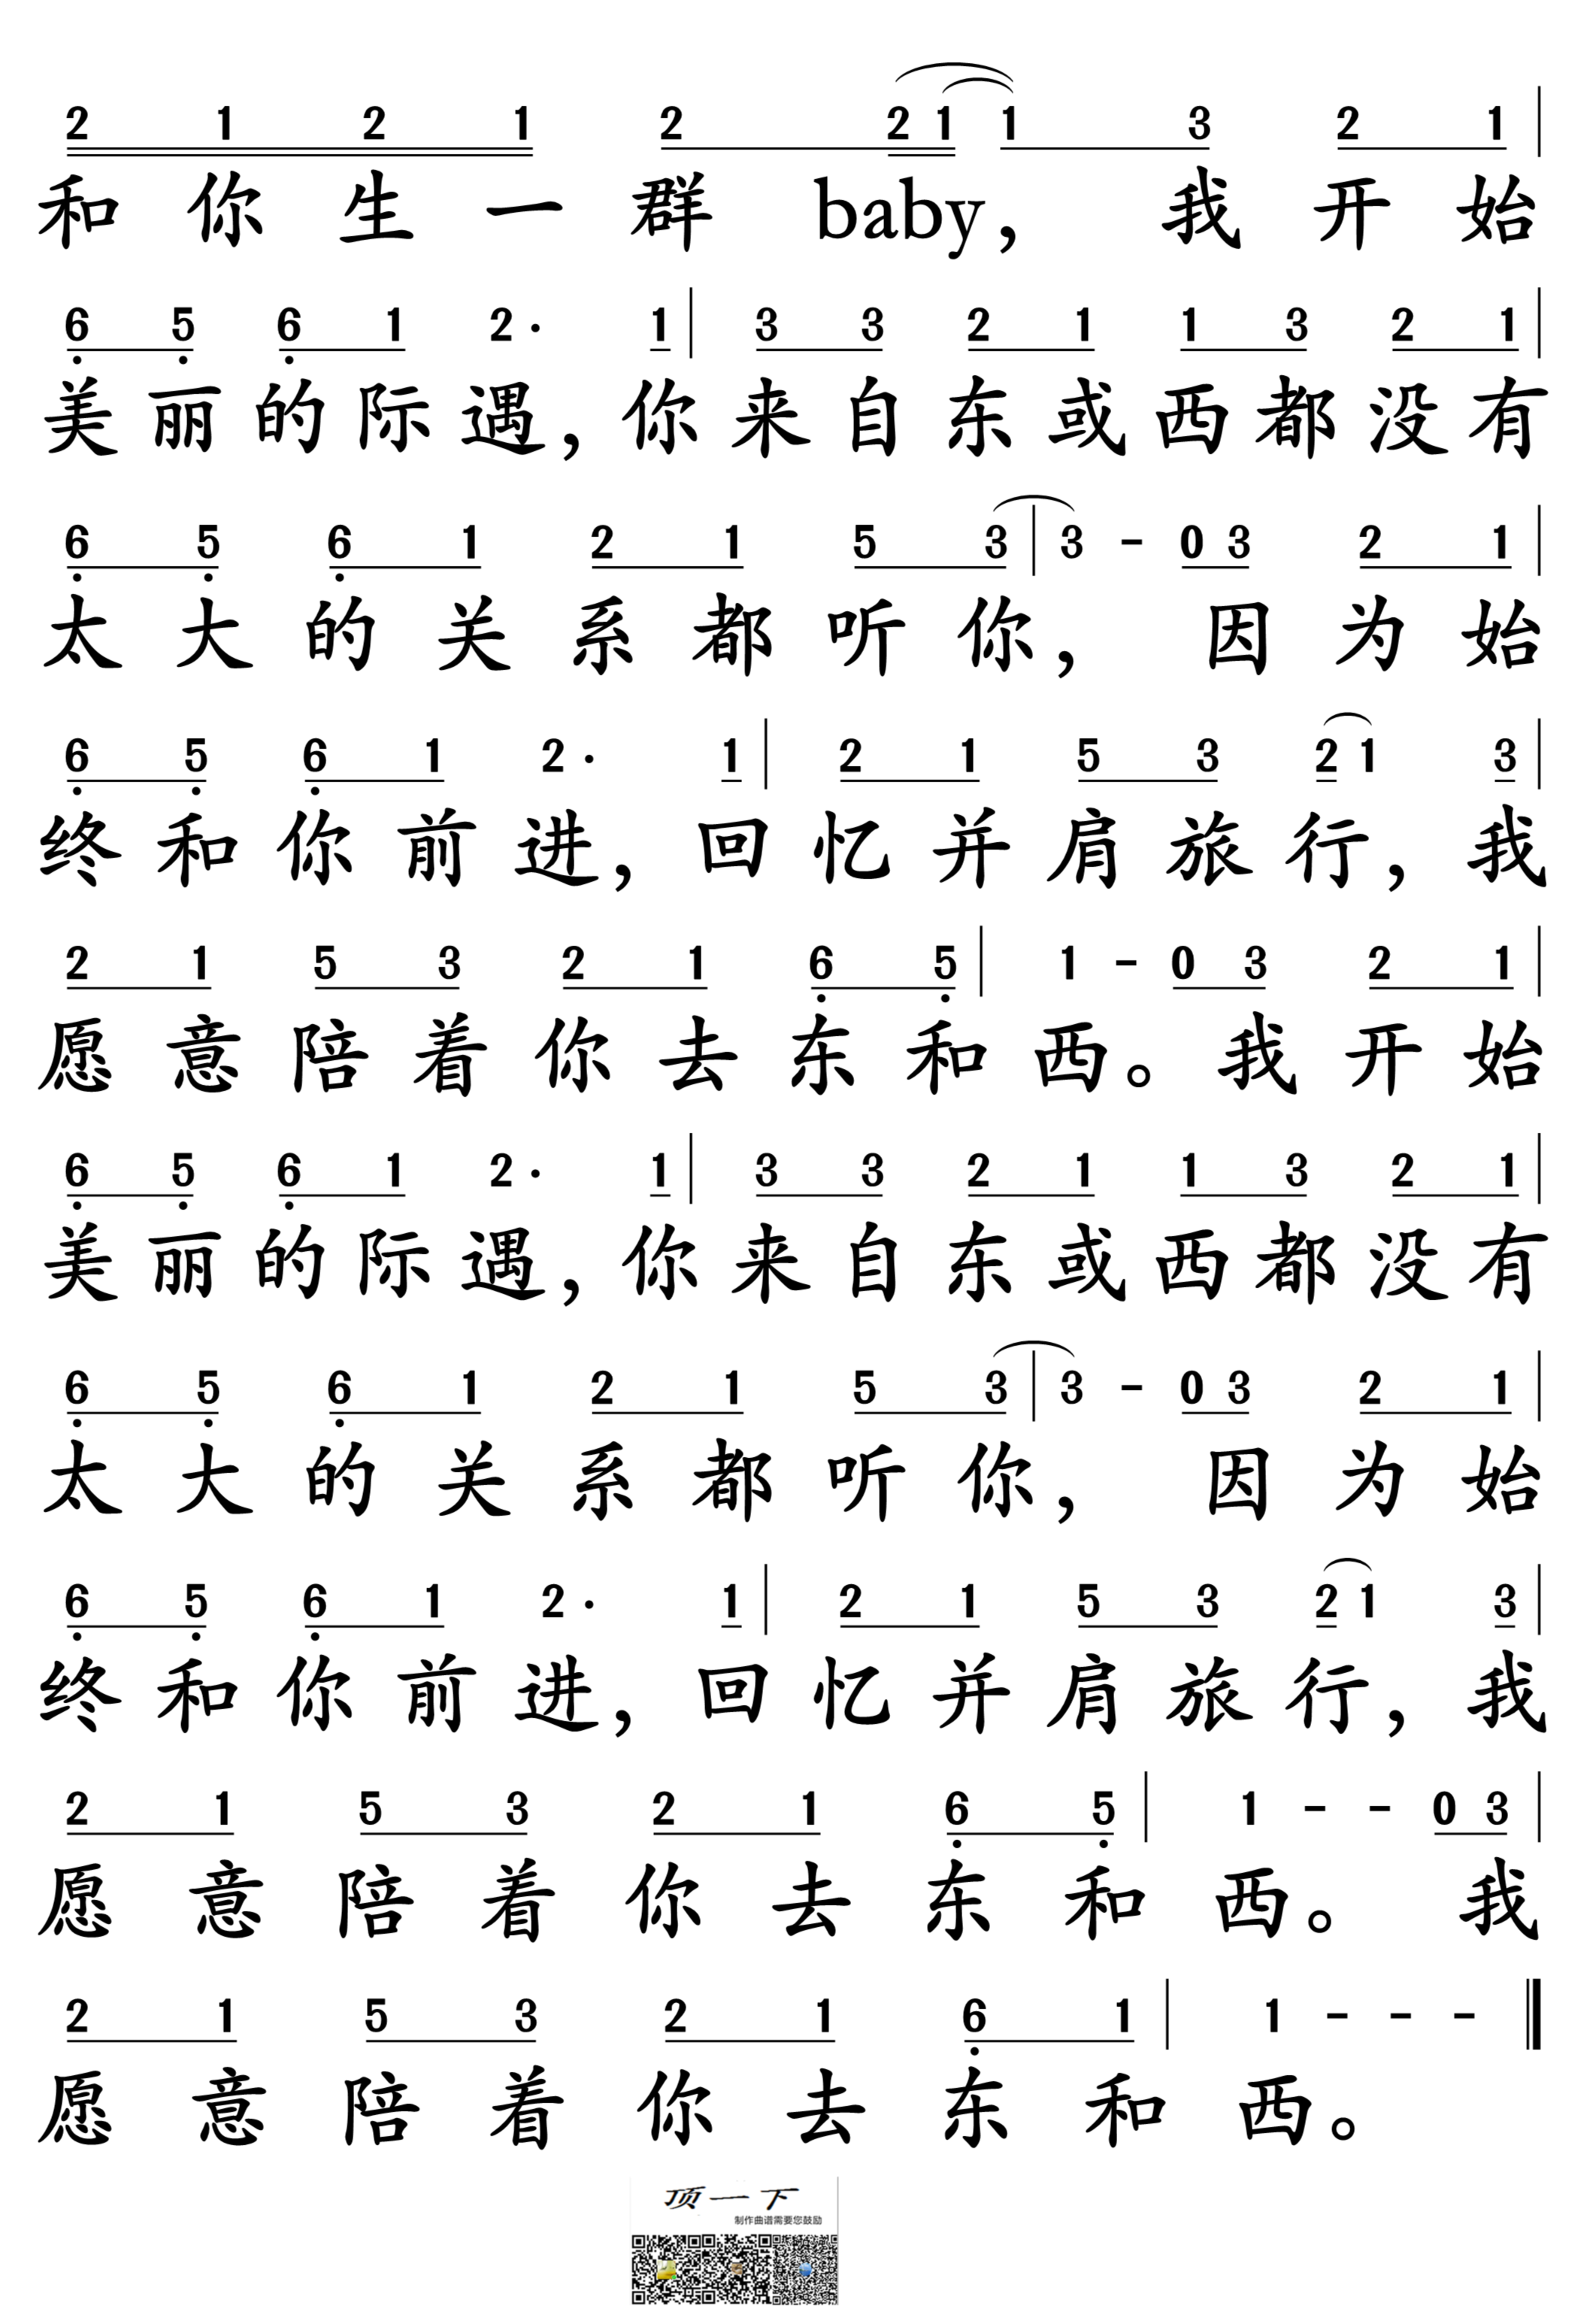 2 1 2 1 2 2 1 1 3 2 1 |
和你生一群baby，我开始
6 5 6 1 2· 1 | 3 3 2 1 1 3 2 1 |
美丽的际遇，你来自东或西都没有
6 5 6 1 2 1 5 3 | 3 - 0 3 2 1 |
太大的关系都听你，因为始
6 5 6 1 2· 1 | 2 1 5 3 2 1 3 |
终和你前进，回忆并肩旅行，我
2 1 5 3 2 1 6 5 | 1 - 0 3 2 1 |
愿意陪着你去东和西。我开始
6 5 6 1 2· 1 | 3 3 2 1 1 3 2 1 |
美丽的际遇，你来自东或西都没有
6 5 6 1 2 1 5 3 | 3 - 0 3 2 1 |
太大的关系都听你，因为始
6 5 6 1 2· 1 | 2 1 5 3 2 1 3 |
终和你前进，回忆并肩旅行，我
2 1 5 3 2 1 6 5 | 1 - - 0 3 |
愿意陪着你去东和西。我
2 1 5 3 2 1 6 1 | 1 - - - ‖
愿意陪着你去东和西。
顶一下
制作曲谱需要您鼓励